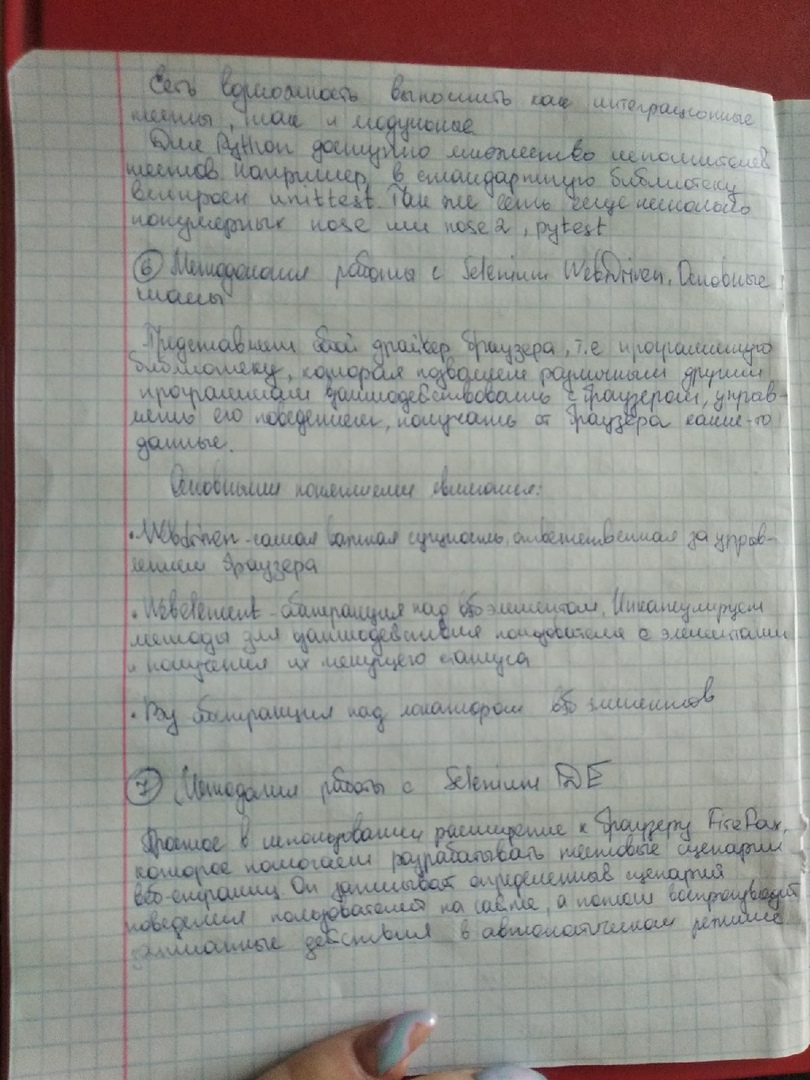 Есть возможность выполнить как интеграционные
тесты, так и модульные
Для Python доступно множество исполнителей
тестов. Например, в стандартную библиотеку
встроен unittest. Так же есть еще несколько
популярных nose или nose2, pytest
⑥ Методология работы с Selenium WebDriver. Основные
шаги
Представляет собой драйвер браузера, т.е программную
библиотеку, которая позволяет различным другим
программам взаимодействовать с браузером, управ-
лять его поведением, получать от браузера какие-то
данные.
Основными понятиями являются:
• Webdriver - самая важная сущность, ответственная за управ-
лением браузера
• Webelement - абстракция над веб элементом. Инкапсулирует
методы для взаимодействия пользователя с элементами
и получения их текущего статуса
• By абстракция над локатором веб элементов
⑦ Методология работы с Selenium IDE
Простое в использовании расширение к браузеру FireFox,
которое помогает разрабатывать тестовые сценарии
веб-страниц. Он записывает определенный сценарий
поведения пользователей на сайте, а потом воспроизводит
записанные действия в автоматическом режиме